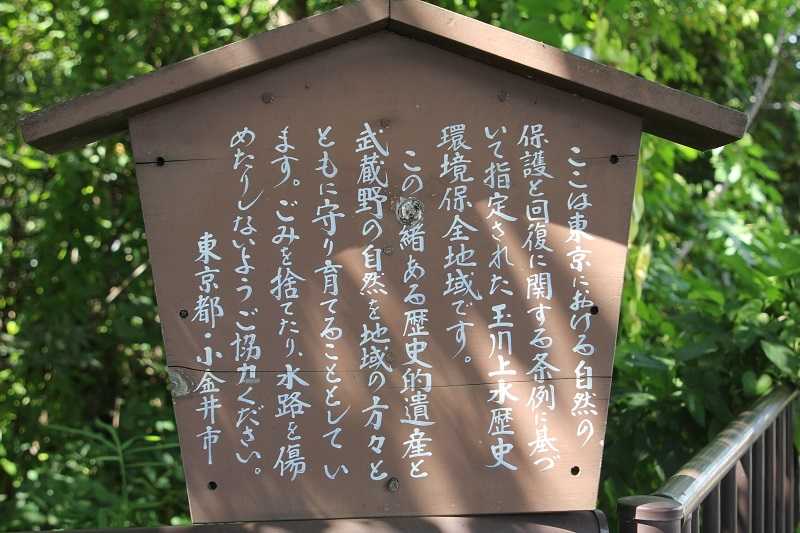 ここは東京における自然の
保護と回復に関する条例に基づ
いて指定された玉川上水歴史
環境保全地域です。
この緒ある歴史的遺産と
武蔵野の自然を地域の方々と
ともに守り育てることとしてい
ます。ごみを捨てたり、水路を傷
めたりしないようご協力ください。
東京都・小金井市